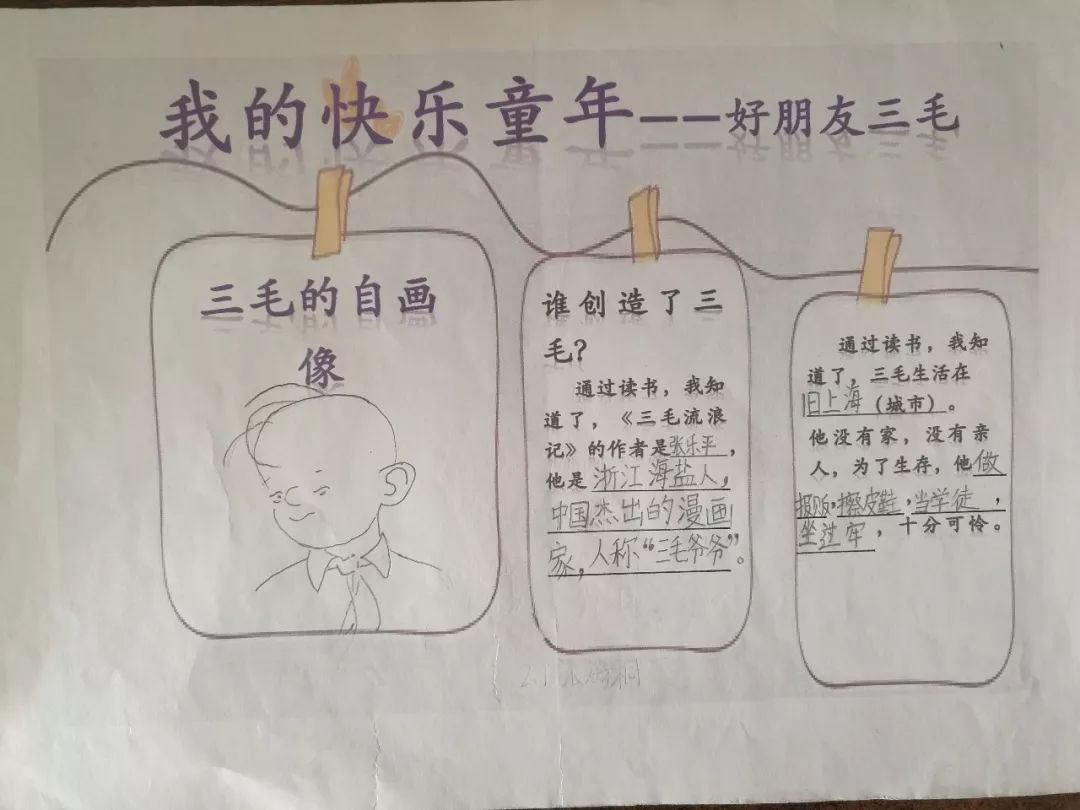 我的快乐童年——好朋友三毛
三毛的自画
像
谁创造了三
毛？
通过读书，我知
道了，《三毛流浪
记》的作者是张乐平，
他是浙江海盐人，
中国杰出的漫画
家，人称“三毛爷爷”。
通过读书，我知
道了，三毛生活在
旧上海（城市）。
他没有家，没有亲
人，为了生存，他做
报贩，擦皮鞋，当学徒，
坐过牢，十分可怜。